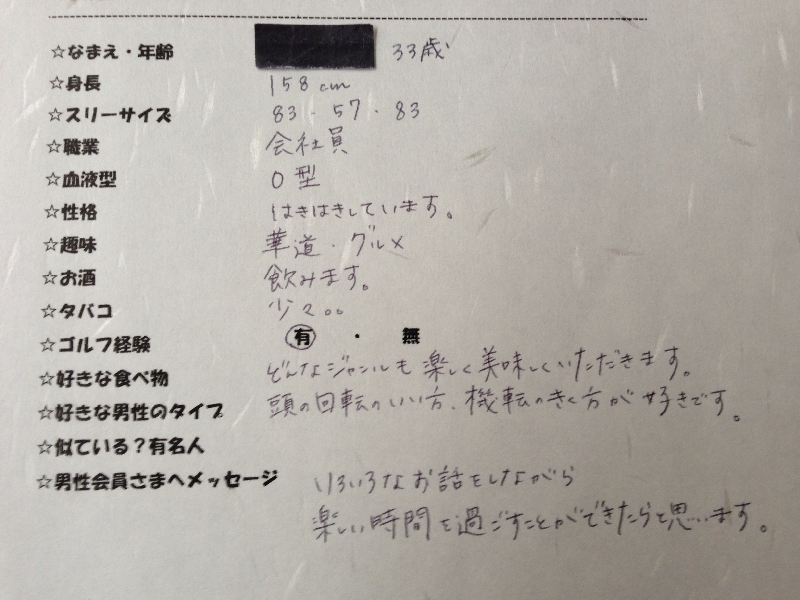 ☆なまえ・年齢 33歳
☆身長 158cm
☆スリーサイズ 83・57・83
☆職業 会社員
☆血液型 O型
☆性格 はきはきしています。
☆趣味 華道・グルメ
☆お酒 飲みます。
☆タバコ 少々。。
☆ゴルフ経験 有・無
☆好きな食べ物 どんなジャンルも楽しく美味しくいただきます。
☆好きな男性のタイプ 頭の回転のいい方、機転のきく方が好きです。
☆似ている?有名人
☆男性会員さまへメッセージ いろいろなお話をしながら
楽しい時間を過ごすことができたらと思います。